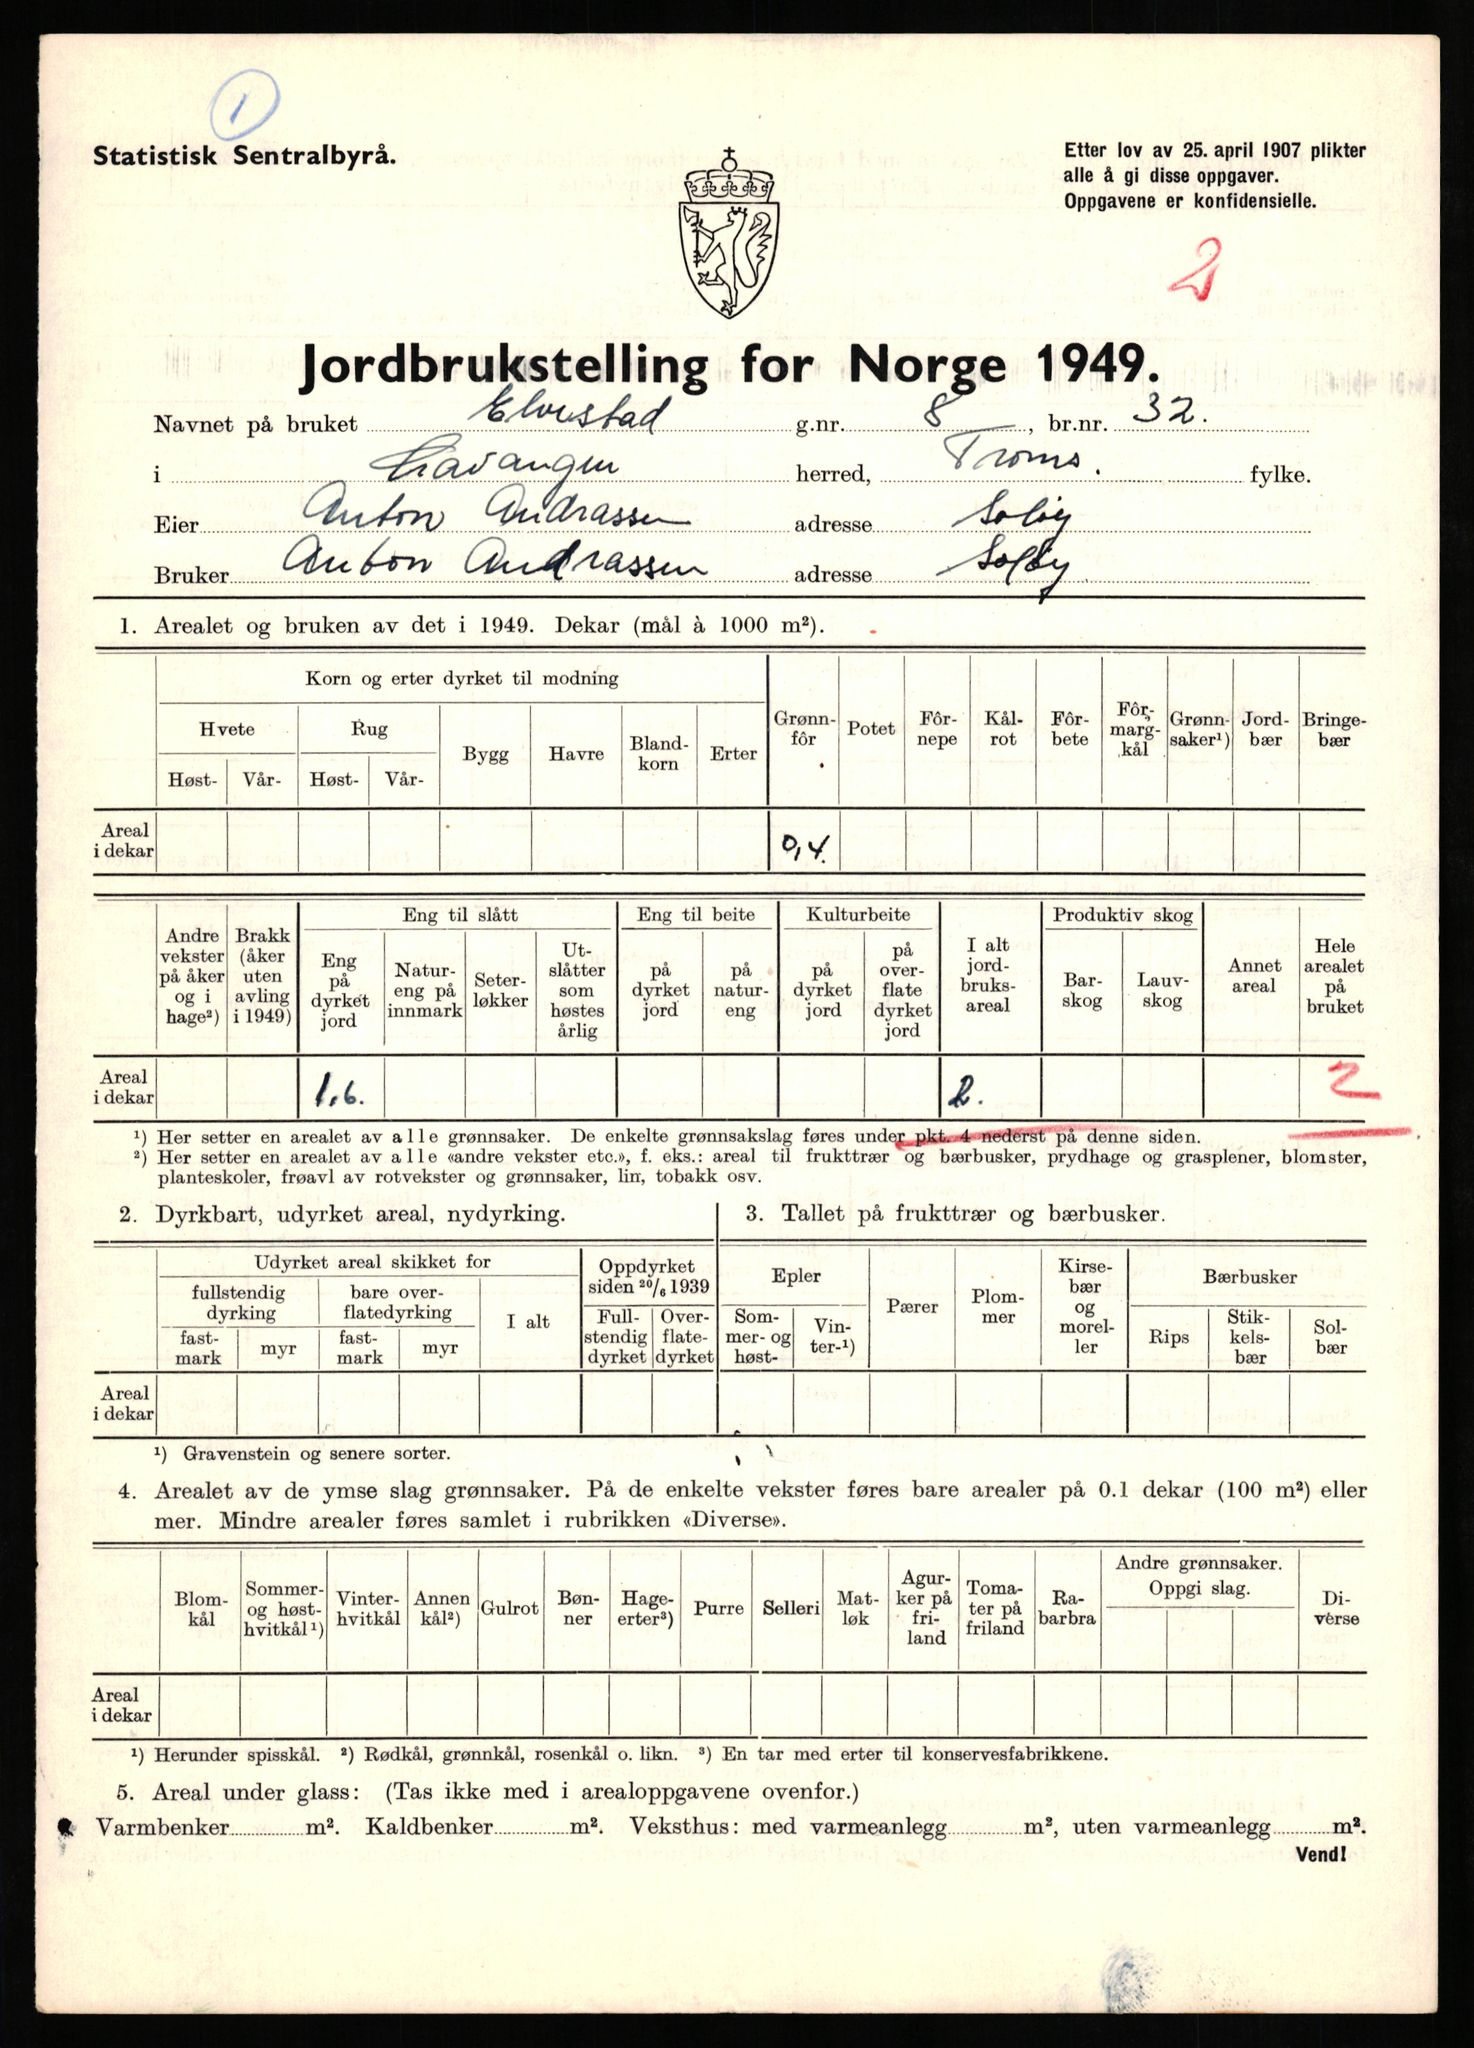 1
Statistisk Sentralbyrå.
Etter lov av 25. april 1907 plikter
alle å gi disse oppgaver.
Oppgavene er konfidensielle.
2
Jordbrukstelling for Norge 1949.
Navnet på bruket Elvestad g.nr. 8, br.nr. 32.
i Lavangen herred, Troms. fylke.
Eier Anton Andrassen adresse Soløy
Bruker Anton Andrassen adresse Soløy
1. Arealet og bruken av det i 1949. Dekar (mål à 1000 m²).
Korn og erter dyrket til modning
Hvete Rug Bygg Havre Bland-korn Erter Grønn-fôr Potet Fôr-nepe Kål-rot Fôr-bete Fôr-marg-kål Grønn-saker¹) Jord-bær Bringe-bær
Høst- Vår- Høst- Vår-
Areal i dekar 0,4.
Eng til slått Eng til beite Kulturbeite Produktiv skog
Andre vekster på åker og i hage²) Brakk (åker uten avling i 1949) Eng på dyrket jord Natur-eng på innmark Seter-løkker Ut-slåtter som høstes årlig på dyrket jord på natur-eng på dyrket jord på over-flate dyrket jord I alt jord-bruks-areal Bar-skog Lauv-skog Annet areal Hele arealet på bruket
Areal i dekar 1,6. 2. 2
¹) Her setter en arealet av alle grønnsaker. De enkelte grønnsakslag føres under pkt. 4 nederst på denne siden.
²) Her setter en arealet av alle «andre vekster etc.», f. eks.: areal til frukttrær og bærbusker, prydhage og grasplener, blomster,
planteskoler, frøavl av rotvekster og grønnsaker, lin, tobakk osv.
2. Dyrkbart, udyrket areal, nydyrking.
Udyrket areal skikket for Oppdyrket siden 20/6 1939
fullstendig dyrking bare over-flatedyrking I alt Full-stendig dyrket Over-flate-dyrket
fast-mark myr fast-mark myr
Areal i dekar
3. Tallet på frukttrær og bærbusker.
Epler Pærer Plom-mer Kirse-bær og morel-ler Bærbusker
Som-mer- og høst- Vin-ter-¹) Rips Stik-kels-bær Sol-bær
¹) Gravenstein og senere sorter.
4. Arealet av de ymse slag grønnsaker. På de enkelte vekster føres bare arealer på 0.1 dekar (100 m²) eller
mer. Mindre arealer føres samlet i rubrikken «Diverse».
Blom-kål Sommer- og høst-hvitkål¹) Vinter-hvitkål Annen kål²) Gulrot Bøn-ner Hage-erter³) Purre Selleri Mat-løk Agur-ker på fri-land Toma-ter på friland Ra-barbra Andre grønnsaker. Oppgi slag. Di-verse
Areal i dekar
¹) Herunder spisskål. ²) Rødkål, grønnkål, rosenkål o. likn. ³) En tar med erter til konservesfabrikkene.
5. Areal under glass: (Tas ikke med i arealoppgavene ovenfor.)
Varmbenker m². Kaldbenker m². Veksthus: med varmeanlegg m², uten varmeanlegg m².
Vend!